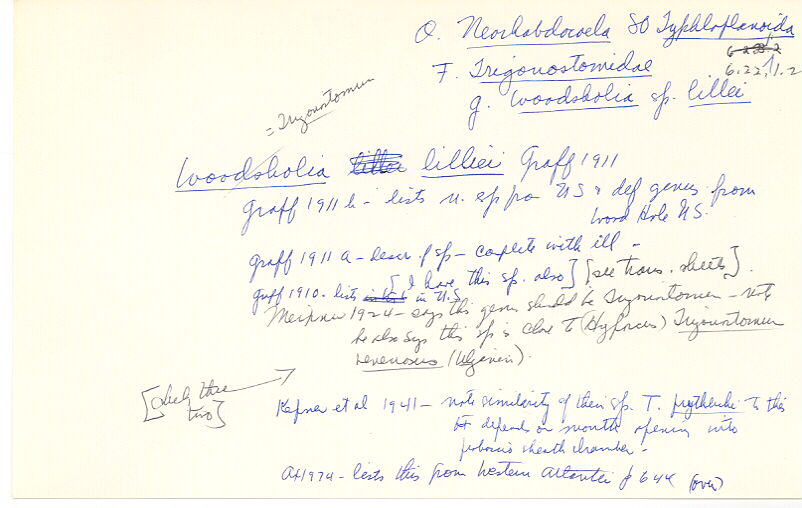 O. Neorhabdocoela SO Typhloplanoida
F. Trigonostomidae
6.22.1.2
g. Woodsholia sp. lillei
= Trigonostomum
Woodsholia lilliei Graff 1911
Graff 1911 b - lists n. sp for US & def genus from
Wood Hole US.
Graff 1911 a - descr. of sp - complete with ill -
[I have this sp. also] [see trans. sheets].
Graff 1910 - lists in U.S
Meixner 1924 - says this genus should be Trigonostomum - note
he also says this sp is close to (Hyporcus) Trigonostomum
venenosus (Uljanin).
[check these
two]
Kepner et al 1941 - note similarity of their sp. T. prytherchi to this
depend on mouth opening into
proboscis sheath chamber -
AX 1974 - lists this from western Atlantic p 644 (over)